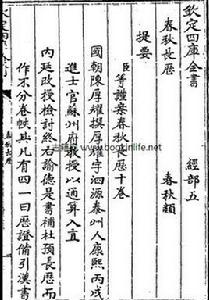 欽定四庫全書 經部五
春秋長厯 春秋類
提要
臣等謹案春秋長厯十卷
國朝陳厚耀撰厚耀字泗源泰州人康熙丙戌
進士官蘇州府教授以通算入直
內廷改授檢討終右諭德是書補杜預長厯而
作不分卷帙其凡有四一曰厯證備引漢書